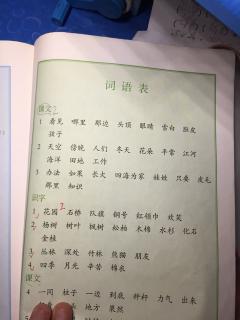 词语表
课文
1 看见 哪里 那边 头顶 眼睛 雪白 肚皮
孩子
2 天空 傍晚 人们 冬天 花朵 平常 江河
海洋 田地 工作
3 办法 如果 长大 四海为家 娃娃 只要 皮毛
那里 知识
识字
1 花园 石桥 队旗 铜号 红领巾 欢笑
2 杨树 树叶 枫树 松柏 木棉 水杉 化石
金桂
3 丛林 深处 竹林 熊猫 朋友
4 四季 月光 辛苦 棉衣
课文
4 一同 柱子 一边 到底 秤杆 力气 出来
地方 果然